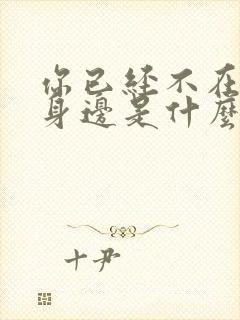 你已經不在
身邊是什麼
十尹